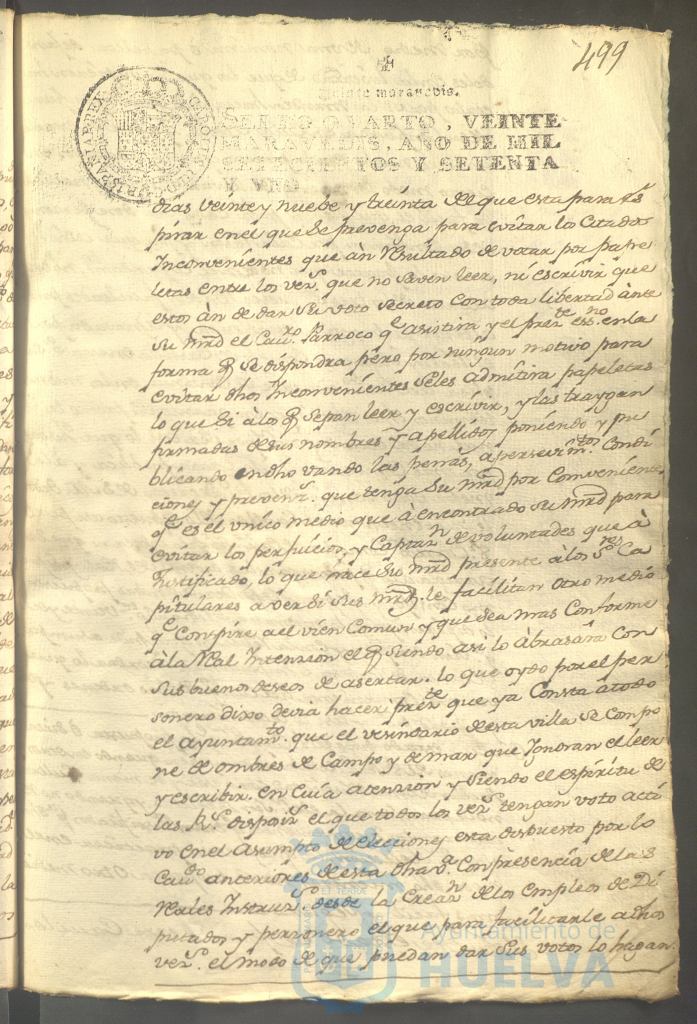 499
Veinte maravedis.
SELLO QVARTO, VEINTE
MARAVEDIS, AÑO DE MIL
SETECIENTOS Y SETENTA
Y VNO
dias veinte y nuebe y treinta del que esta para es
pirar en el que se prevenga para evitar los Citados
Inconvenientes que àn Resultado de votar por pape
letas entre los vez.s que no saven leer, ni escrivir que
estos àn de dar su voto secreto con toda libertad ànte
su mrd el Cav.ro Parroco q.e asistira y el pres.te es.no en la
forma q se dispondra pero por ningun motivo para
evitar dhos Inconvenientes seles admitira papeletas
lo que si à los q sepan leer y escrivir, y las traygan
firmadas de sus nombres y apellidos poniendo y pu
blicando en dho vando las penas, apersevim.tos Condi
ciones y prevenz.s que tenga su mrd por Conveniente
q.e es el unico medio que à encontrado su mrd para
evitar los perjuicios, y Captaz.n de voluntades que à
Justificado, lo que hace su mrd presente à los S.res Ca
pitulares a ver si sus mrds. le facilitan otro medio
q.e Conspire a el vien Comun y que sea mas Conforme
à la Real Intenzion el q siendo asi lo àbrasara Con
sus buenos deseos de asertar. lo que oydo por el per
sonero dixo devia hacer pres.te que ya Consta a todo
el Ayuntam.to que el vesindario de esta villa se Compo
ne de ombres de Campo y de mar que Ignoran el leer
y escribir. en Cuia atenzion y siendo el espiritu de
las R.s disposiz.s el que todos los vez.s tengan voto acti
vo en el Asumpto de elecciones esta dispuesto por lo
Cav.do anteriores de esta dha v.a Con presencia de las
Reales Instruz.s desde la Creaz.n de los empleos de Di
putados y personero el que para facilitarle a dhos
vez.s el modo de que puedan dar sus votos lo hagan
Ayuntamiento de
HUELVA